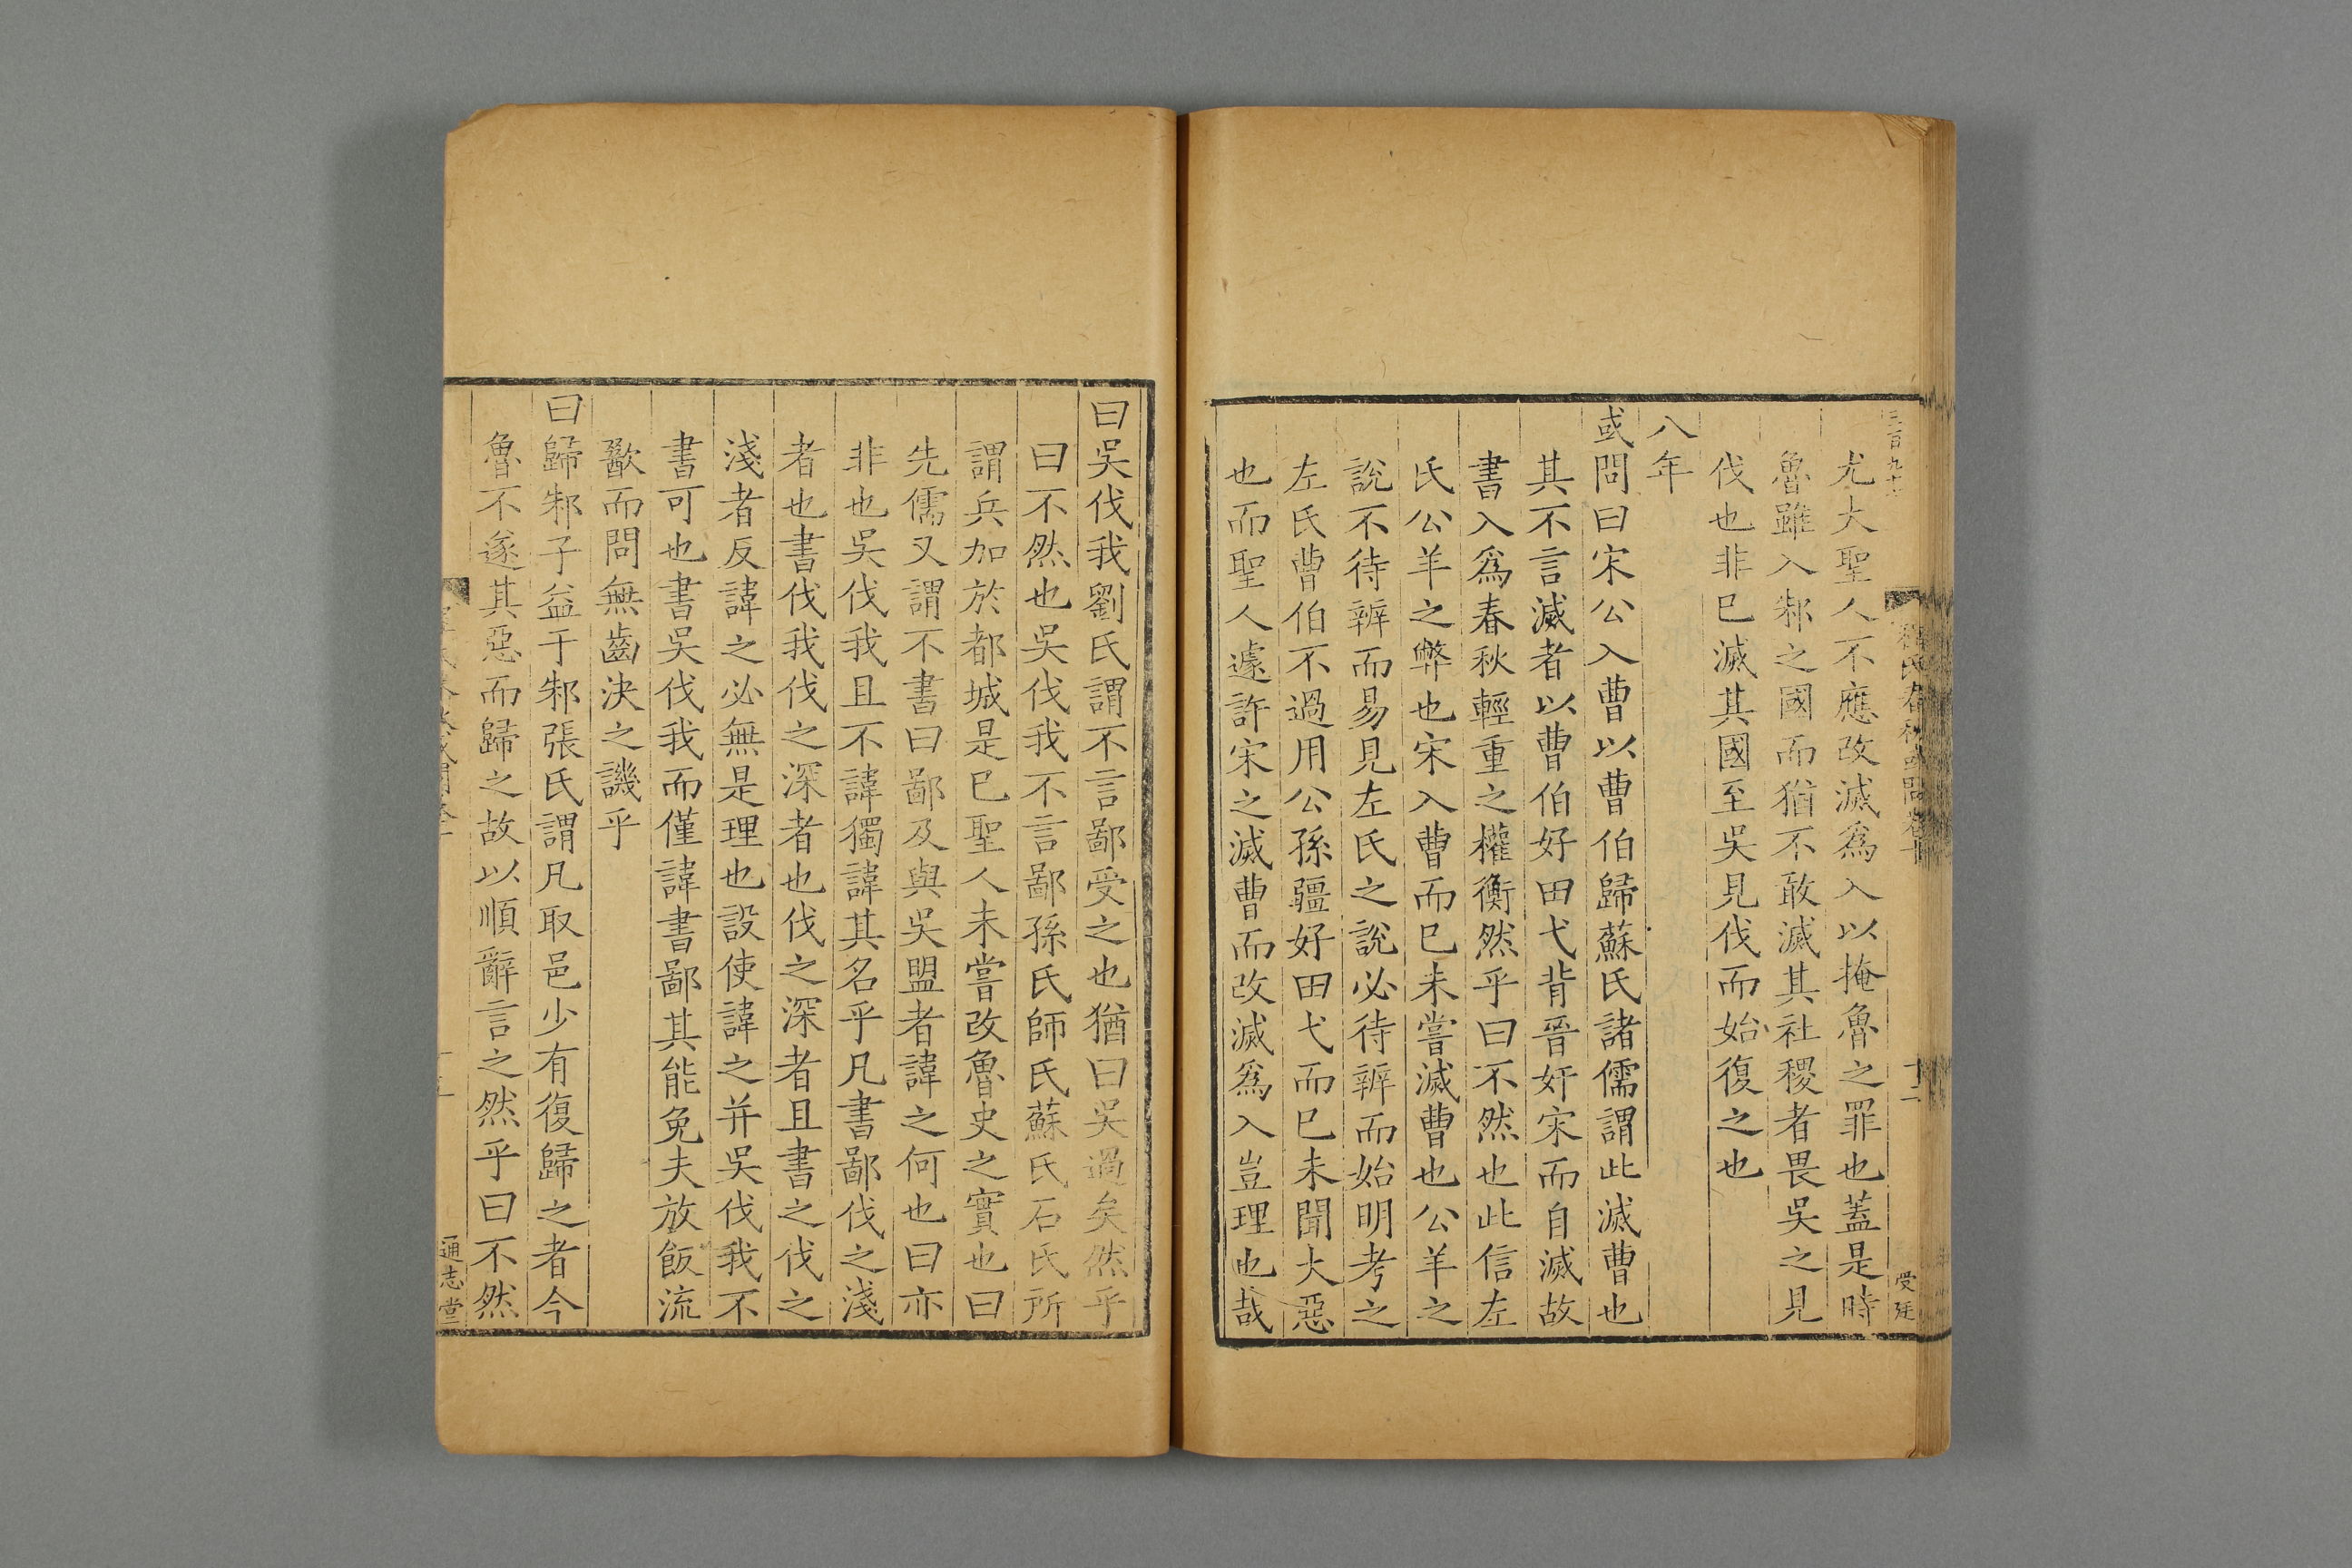 尤大聖人不應改滅爲入以掩魯之罪也蓋是時
魯雖入邾之國而猶不敢滅其社稷者畏吳之見
伐也非巳滅其國至吳見伐而始復之也
八年
或問曰宋公入曹以曹伯歸蘇氏諸儒謂此滅曹也
其不言滅者以曹伯好田弋背晉奸宋而自滅故
書入爲春秋輕重之權衡然乎曰不然也此信左
氏公羊之弊也宋入曹而巳未嘗滅曹也公羊之
說不待辨而易見左氏之說必待辨而始明考之
左氏曹伯不過用公孫疆好田弋而巳未聞大惡
也而聖人遽許宋之滅曹而改滅爲入豈理也哉
曰吳伐我劉氏謂不言鄙受之也猶曰吳過矣然乎
曰不然也吳伐我不言鄙孫氏師氏蘇氏石氏所
謂兵加於都城是巳聖人未嘗改魯史之實也曰
先儒又謂不書曰鄙及與吳盟者諱之何也曰亦
非也吳伐我且不諱獨諱其名乎凡書鄙伐之淺
者也書伐我伐之深者也伐之深者且書之伐之
淺者反諱之必無是理也設使諱之并吳伐我不
書可也書吳伐我而僅諱書鄙其能免夫放飯流
歠而問無齒決之譏乎
曰歸邾子益于邾張氏謂凡取邑少有復歸之者今
魯不遂其惡而歸之故以順辭言之然乎曰不然
通志堂